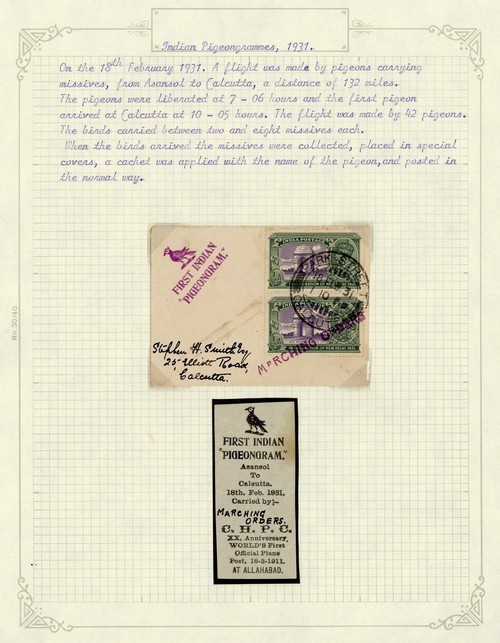 Indian Pigeongrammes, 1931.
On the 18th February 1931. A flight was made by pigeons carrying
missives, from Asansol to Calcutta, a distance of 132 miles.
The pigeons were liberated at 7 - 06 hours and the first pigeon
arrived at Calcutta at 10 - 05 hours. The flight was made by 42 pigeons.
The birds carried between two and eight missives each.
When the birds arrived the missives were collected, placed in special
covers, a cachet was applied with the name of the pigeon,and posted in
the normal way.
No.30/40
FIRST INDIAN
"PIGEONGRAM."
INDIA POSTAGE
PARK STREET
MARCHING ORDERS
Stephen H. Smith Esq
25 Elliott Road,
Calcutta.
FIRST INDIAN
"PIGEONGRAM."
Asansol
To
Calcutta.
18th. Feb. 1931.
Carried by:—
MARCHING
ORDERS.
C. H. P. C.
XX. Anniversary,
WORLD'S First
Official Plane
Post, 18-2-1911.
AT ALLAHABAD.